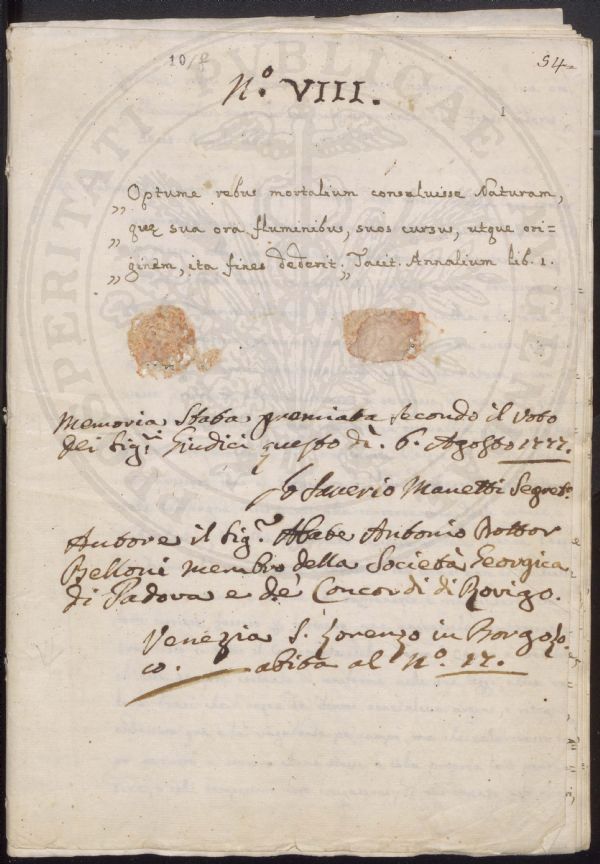 10
54
N.º VIII.
1
„ Optume rebus mortalium consuluisse Naturam,
„ quę sua ora fluminibus, suos cursus, utque ori=
„ ginem, ita fines dederit „ Tacit. Annalium lib. 1.
Memoria Stata premiata secondo il voto
dei Sig.ri Giudici questo dì. 6. Agosto 1777.
Io Saverio Manetti Segret.o
Autore il Sig.r Abate Antonio Bottor
Belloni membro della Società Georgica
di Padova e de' Concordi di Rovigo.
Venezia S. Lorenzo in Borgolo.
co. abita al N.º 17.
PROSPERITATI PUBLICAE AUGENDAE